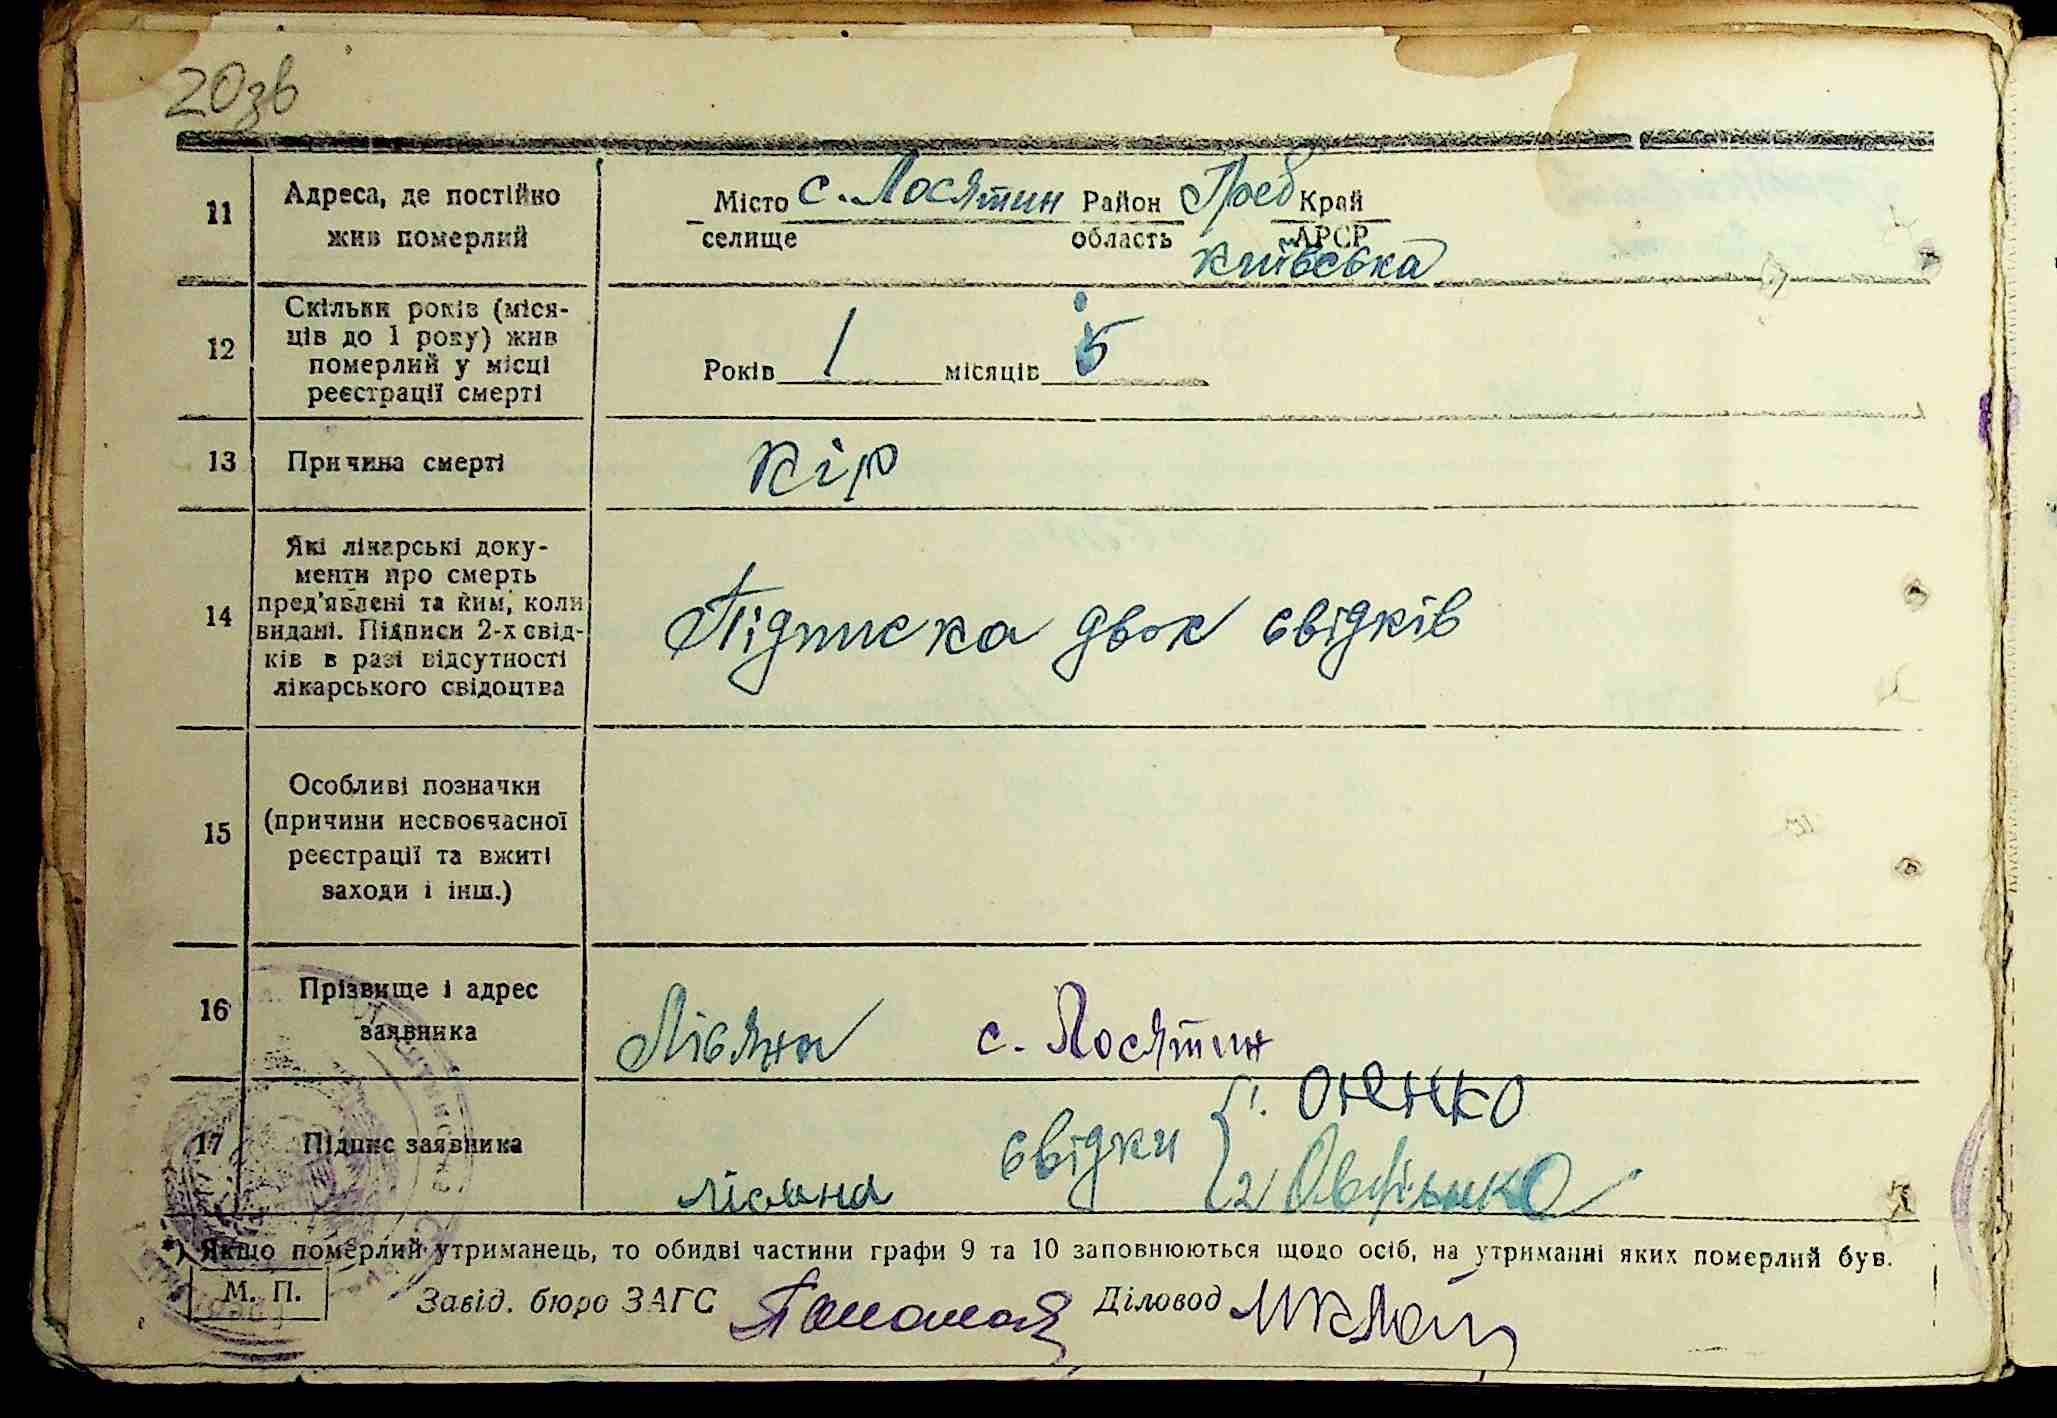 20зв
11 Адреса, де постійно жив померлий
Місто с. Лосятин Район Греб Край
селище область АРСР
Київська
12 Скільки років (міся-
ців до 1 року) жив
померлий у місці
реєстрації смерті
Років 1 місяців 5
13 Причина смерті
кір
14 Які лікарські доку-
менти про смерть
пред'явлені та ким, коли
видані. Підписи 2-х свід-
ків в разі відсутності
лікарського свідоцтва
Підписка двох свідків
15 Особливі позначки
(причини несвоєчасної
реєстрації та вжиті
заходи і інш.)
16 Прізвище і адрес
заявника
Лісяна с. Лосятин
17 Підпис заявника
лісяна свідки
1. Оненко
2
*) Якщо померлий утриманець, то обидві частини графи 9 та 10 заповнюються щодо осіб, на утриманні яких померлий був.
М. П.
Завід. бюро ЗАГС Діловод